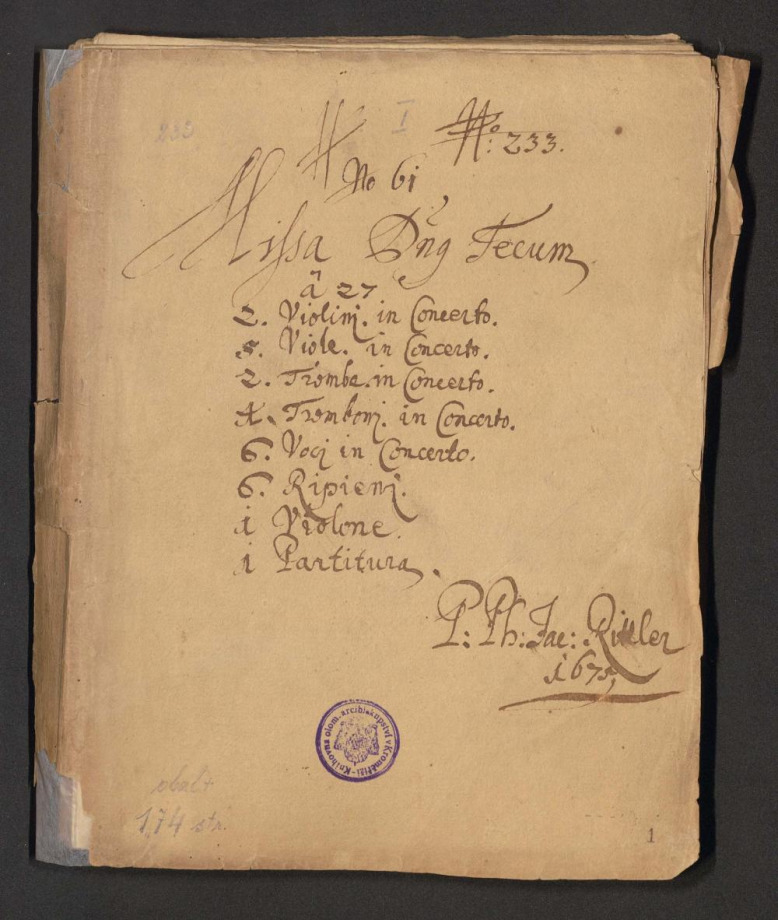 233
I
No: 233.
No 61
Missa Dng Tecum
â 27
2. Violinj. in Concerto.
5. Viole. in Concerto.
2. Trombe. in Concerto.
4. Trombonj. in Concerto.
6. Vocj in Concerto.
6. Ripienj.
1 Violone.
1 Partitura.
P: Ph: Jac: Rittler
1675
Knihovna olom. arcibiskupství v Kroměříži
174 str.
1